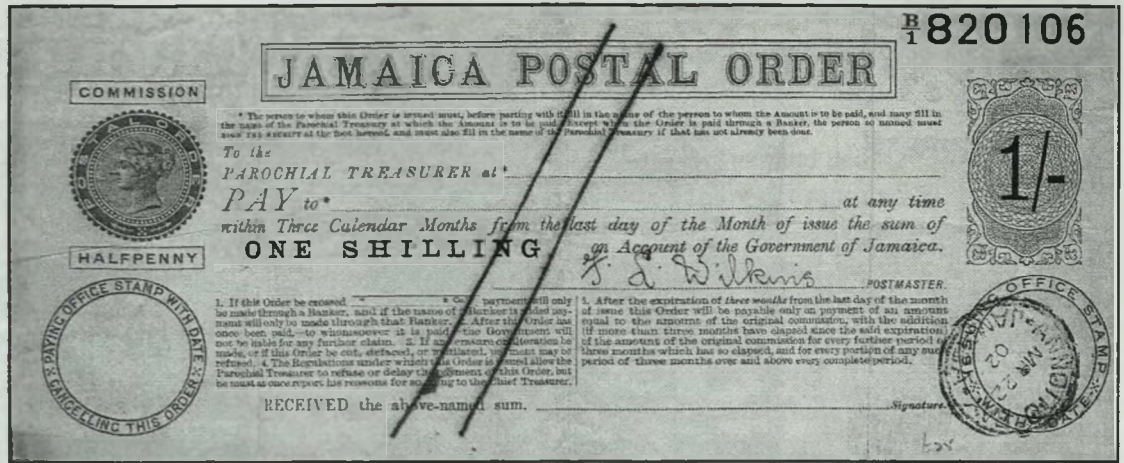 B/1 820106
JAMAICA POSTAL ORDER
COMMISSION
POSTAL ORDER
HALFPENNY
* The person to whom this Order is issued must, before parting with it fill in the name of the person to whom the Amount is to be paid, and may fill in
the name of the Parochial Treasury at which the Amount is to be paid. Except when the Order is paid through a Banker, the person so named must
SIGN THE RECEIPT at the foot hereof, and must also fill in the name of the Parochial Treasury if that has not already been done.
To the
PAROCHIAL TREASURER at*
PAY to* at any time
within Three Calendar Months from the last day of the Month of issue the sum of
ONE SHILLING, on Account of the Government of Jamaica.
1/-
Wilkins
POSTMASTER.
PAYING OFFICE STAMP WITH DATE
CANCELLING THIS ORDER
1. If this Order be crossed " & Co." payment will only
be made through a Banker, and if the name of a Banker is added pay-
ment will only be made through that Banker. 2. After the Order has
once been paid, to whomsoever it is paid, the Government will
not be liable for any further claim. 3. If any erasure or alteration be
made, or if this Order be cut, defaced, or mutilated, payment may be
refused. 4. The Regulations under which this Order is issued allow the
Parochial Treasurer to refuse or delay the payment of this Order, but
he must at once report his reasons for so doing to the Chief Treasurer.
5. After the expiration of three months from the last day of the month
of issue this Order will be payable only on payment of an amount
equal to the amount of the original commission, with the addition
(if more than three months have elapsed since the said expiration)
of the amount of the original commission for every further period of
three months which has so elapsed, and for every portion of any such
period of three months over and above every complete period.
ISSUING OFFICE STAMP
WITH DATE
MR 22
02
JAMAICA
RECEIVED the above-named sum. Signature.